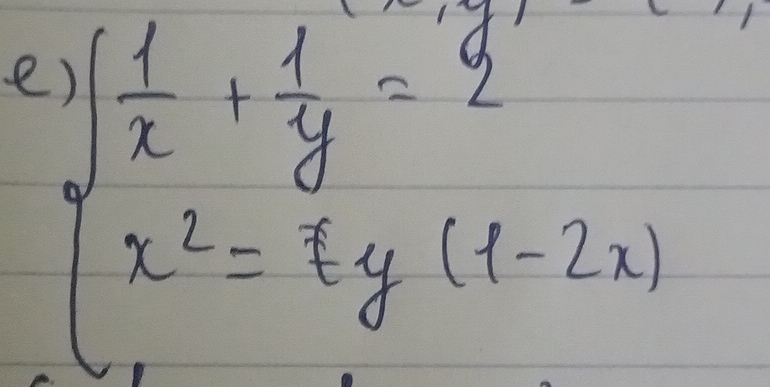 e) { 1/x + 1/y = 2
x² = y (1 - 2x)